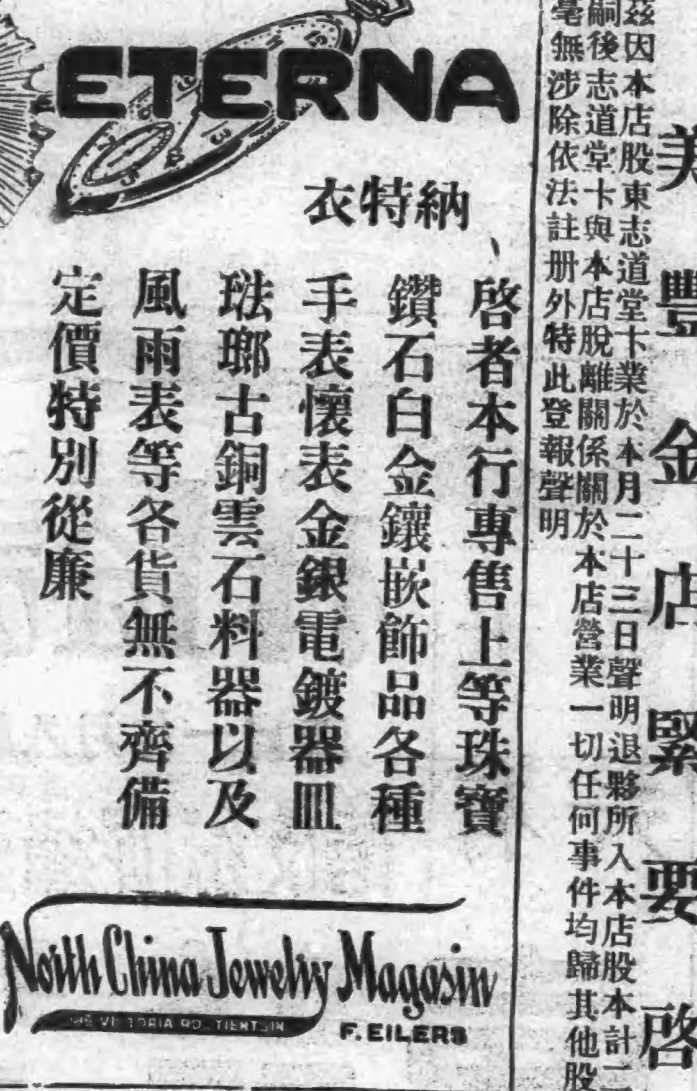 美豐金店緊要啓
茲因本店股東志道堂卞業於本月二十三日聲明退夥所入本店股本計
嗣後志道堂卞與本店脫離關係關於本店營業一切任何事件均歸其他股
毫無涉除依法註册外特此登報聲明
ETERNA
衣特納
啓者本行專售上等珠寶
鑽石白金鑲嵌飾品各種
手表懷表金銀電鍍器皿
琺瑯古銅雲石料器以及
風雨表等各貨無不齊備
定價特別從廉
North China Jewelry Magasin
VICTORIA RD. TIENTSIN
F. EILERS